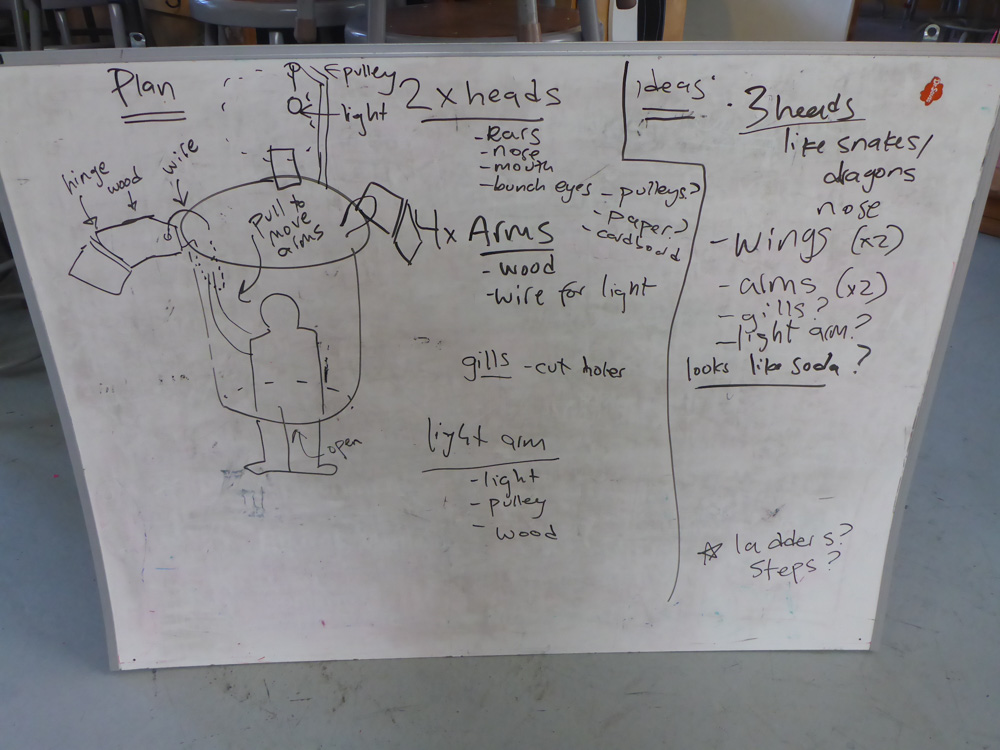 Plan
P
pulley
light
hinge
wood
wire
Pull to
move
arms
open
2 x heads
- Ears
- nose
- mouth
- bunch eyes - pulleys?
- paper?
- cardboard
4x Arms
- wood
- wire for light
gills - cut holes
light arm
- light
- pulley
- wood
ideas:
· 3 heads
like snakes/
dragons
nose
- wings (x2)
- arms (x2)
- gills?
- light arm?
looks like soda?
☆ ladders?
steps?